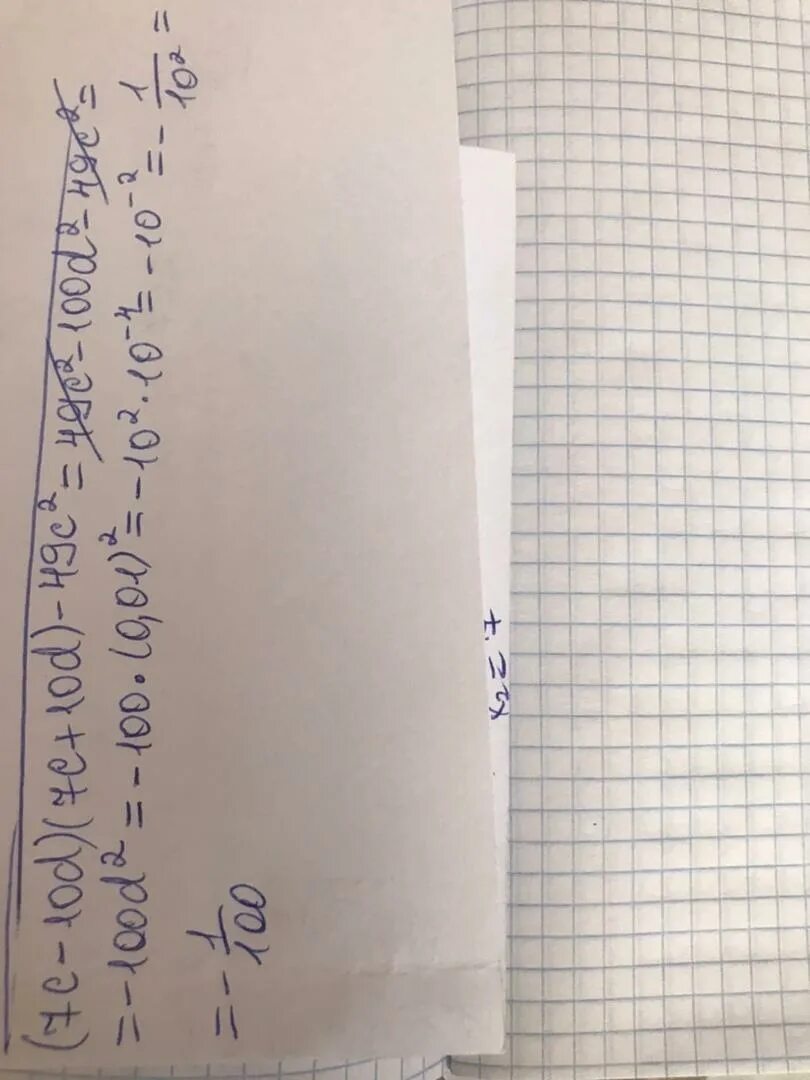 (7c-10d)(7c+10d)-49c²=49c²-100d²-49c²=
=-100d²=-100·(0,01)²=-10²·10⁻⁴=-10⁻²=-1/10²=
=-1/100